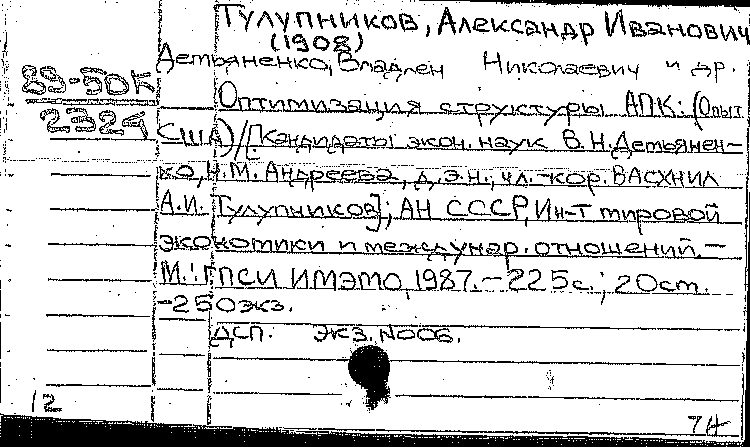 Тулупников, Александр Иванович
(1908)
Детьяненко, Владлен Николаевич и др.
89-50К
2324
Оптимизация структуры АПК: (Опыт
США) / [кандидаты экон. наук В.Н. Детьянен-
ко, Н.М. Андреева, д.э.н., чл.-кор. ВАСХНИЛ
А.И. Тулупников]; АН СССР, Ин-т мировой
экономики и междунар. отношений. –
М.: ГПСИ ИМЭМО, 1987. – 225с.; 20см.
– 250экз.
ДСП. Экз. N006.
12